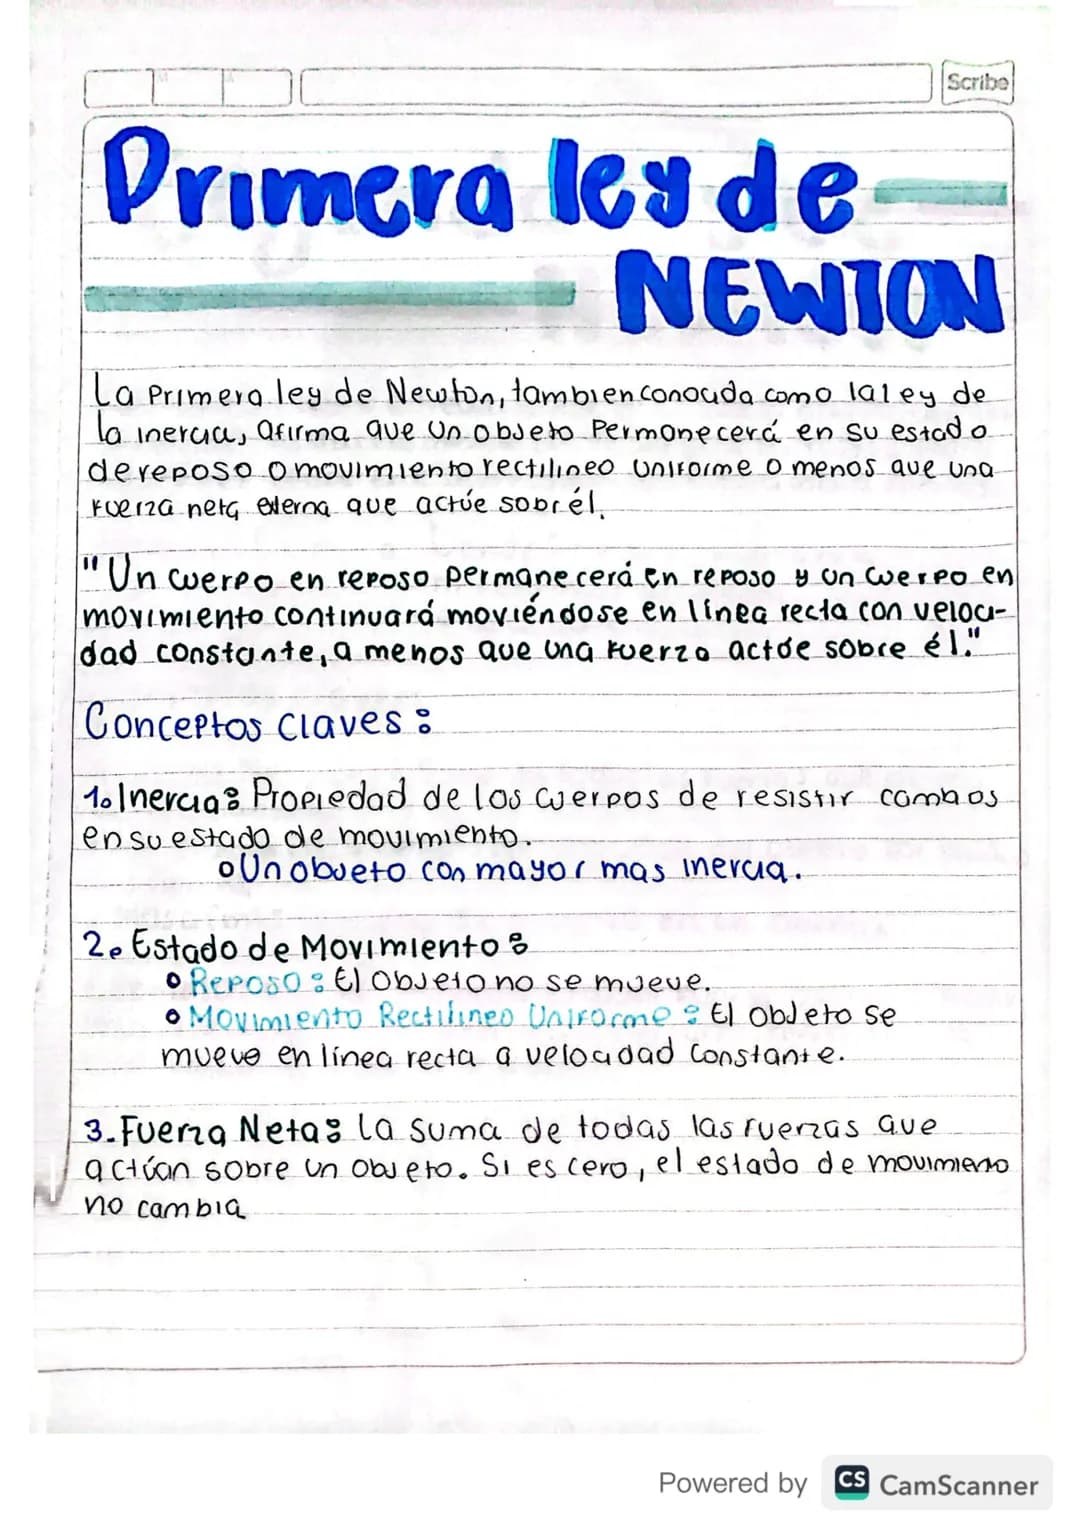 Scribe
Primera ley de
NEWTON
La Primera ley de Newton, tambien conocida como la ley de
la inercia, afirma que un objeto Permanecerá en su estado
de reposo o movimiento rectilineo uniforme o menos que una
fuerza neta externa que actúe sobr él.
"Un cuerpo en reposo permanecerá en reposo y un cuerpo en
movimiento continuará moviéndose en línea recta con veloci-
dad constante, a menos que una fuerza actúe sobre él."
Conceptos Claves:
1. Inercia: Propiedad de los cuerpos de resistir cambios
en su estado de movimiento.
Un objeto con mayor mas inercia.
2. Estado de Movimiento:
Reposo: El objeto no se mueve.
Movimiento Rectilineo Uniforme: El objeto se
mueve en línea recta a velocidad constante.
3. Fuerza Neta: la suma de todas las fuerzas que
actúan sobre un objeto. Si es cero, el estado de movimiento
no cambia
Powered by CS CamScanner